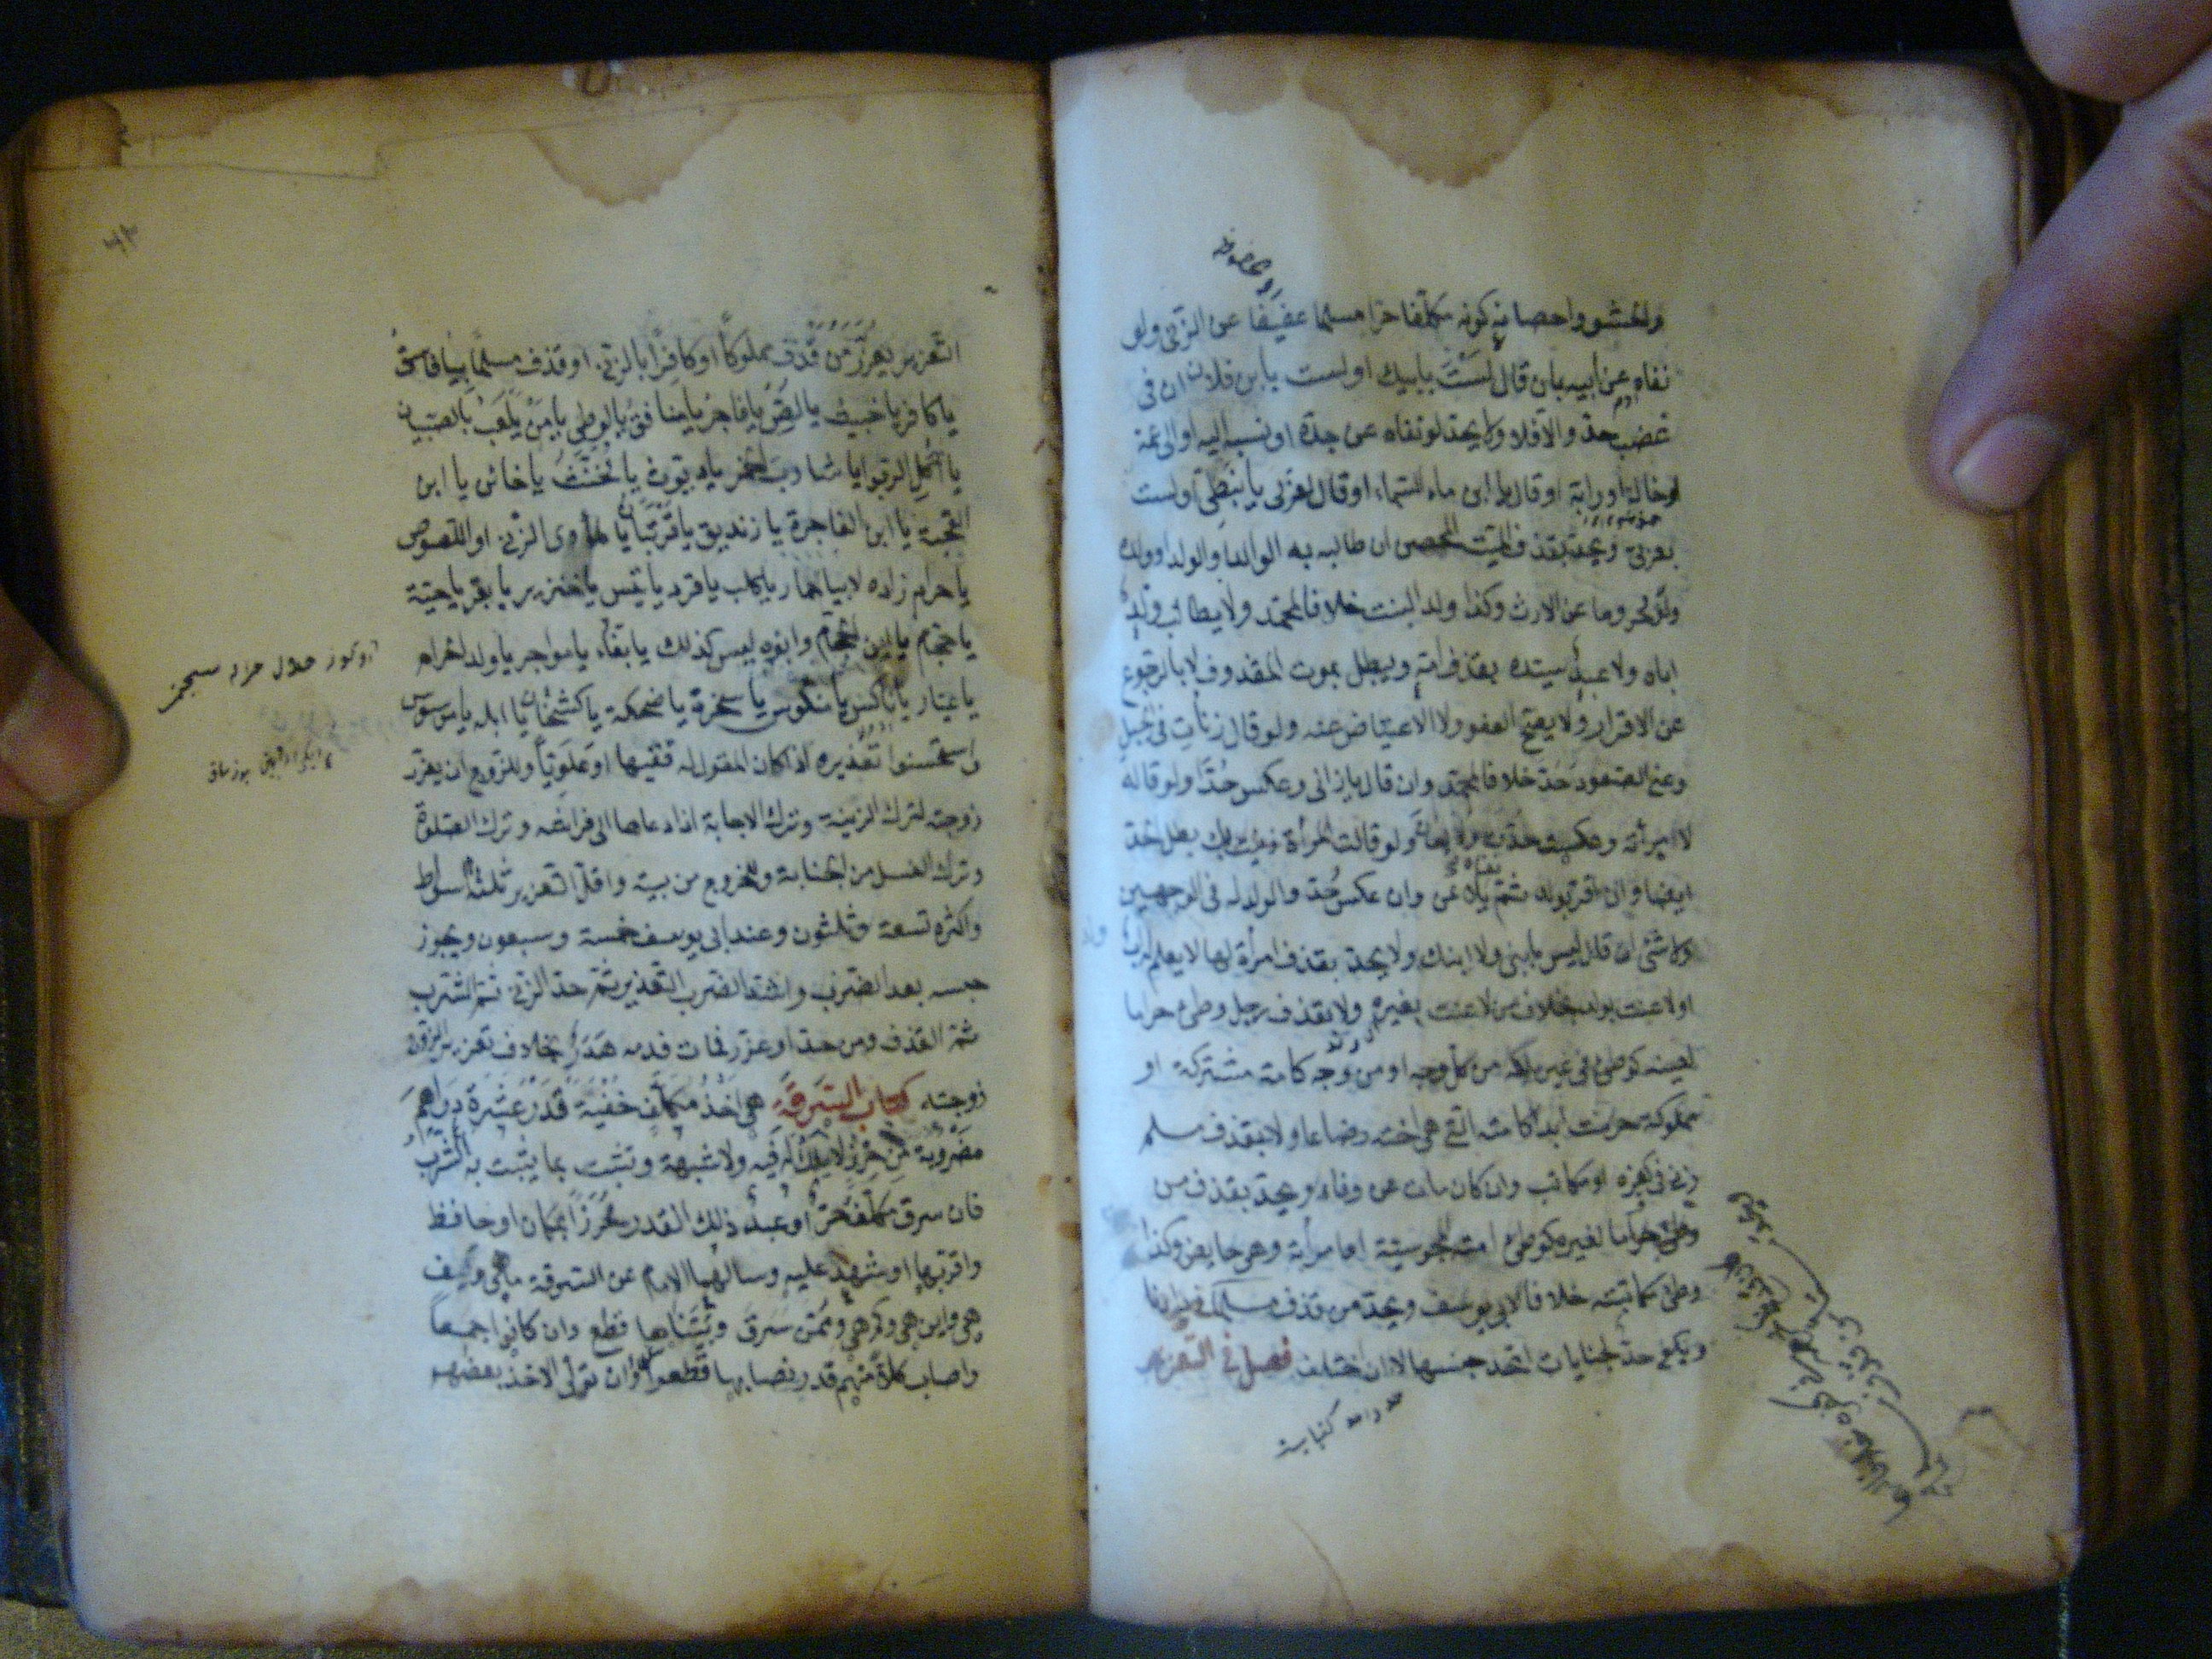 والحشو واحصانه كونه مكلفا حرا مسلما عفيفا عن الزنى ولو
نفاه عن ابيه بان قال لست بابيك او لست بابن فلان ان فى
غضب حد والا فلا ولا يحد لو نفاه عن جده او نسبه اليه او الى عمه
او خاله او رابه او قال يا ابن ماء السماء او قال لعربى يا نبطى او لست
بعربى ويحد بقذف الميت المحصن ان طالب به الوالد او الولد او ولده
ولو محروما عن الارث وكذا ولد البنت خلافا لمحمد ولا يطالب ولد
اباه ولا عبد سيده بقذف امه ويبطل بموت المقذوف لا بالرجوع
عن الاقرار ولا يصح العفو ولا الاعتياض عنه ولو قال زنأت فى الجبل
وعنى الصعود حد خلافا لمحمد وان قال يا زانى وعكس حدا ولو قاله
لامرأته وعكست حدت ولا لعان ولو قالت المرأة زنيت بك بطل الحد
ايضا وان اقر بولد ثم نفاه لاعن وان عكس حد والولد له فى الوجهين
ولا شئ ان قال ليس بابنى ولا ابنك ولا يحد بقذف امرأة لها ولد لا يعلم اب
او لاعنت بولد بخلاف من لاعنت بغيره ولا بقذف رجل وطئ حراما
لعينه كوطئ فى غير ملكه من كل وجه او من وجه كامة مشتركة او
مملوكة حرمت ابدا كامته التى هى اخته رضاعا ولا بقذف مسلم
زنى فى كفره او مكاتب وان كان مات عن وفاء ويحد بقذف من
وطئ حراما لغيره كوطئ امته المجوسية او امرأته وهى حايض وكذا
وطئ مكاتبته خلافا لابى يوسف ويحد من قذف مسلما
ويكفى حد لجنايات اتحد جنسها لا ان اختلف فصل فى التعزير
التعزير يعزر من قذف مملوكا او كافرا بالزنى او قذف مسلما بيا فاسق
يا كافر يا خبيث يا لص يا فاجر يا منافق يا لوطى يا من يلعب بالصبيان
يا آكل الربوا يا شارب الخمر يا ديوث يا مخنث يا خائن يا ابن
القحبة يا ابن الفاجرة يا زنديق يا قرطبان يا مأوى الزنى او اللصوص
يا حرام زاده لا بيا حمار يا كلب يا قرد يا تيس يا خنزير يا بقر يا حية
يا حجام يا ابن الحجام وابوه ليس كذلك يا بغاء يا مواجر يا ولد الحرام
يا عيار يا ناكس يا منكوس يا سخرة يا ضحكة يا كشخان يا ابله يا موسوس
واستحسنوا تعذيره اذا كان المقول له فقيها او علويا وللزوج ان يعزر
زوجته لترك الزينة وترك الاجابة اذا دعاها الى فراشه وترك الصلوة
وترك الغسل من الجنابة وللخروج من بيته واقل التعزير ثلثة اسواط
واكثره تسعة وثلثون وعند ابى يوسف خمسة وسبعون ويجوز
حبسه بعد الضرب واشد الضرب التعذير ثم حد الزنى ثم الشرب
ثم القذف ومن حد او عزر فمات فدمه هدر بخلاف تعزير الزوج
زوجته كتاب السرقة هى اخذ مكلف خفية قدر عشرة دراهم
مضروبة من حرز لا ملك له فيه ولا شبهة وتثبت بما يثبت به الشرب
فان سرق مكلف حر او عبد ذلك القدر محرزا بمكان او حافظ
واقر بها او شهد عليه وسالهما الامام عن السرقة ما هى وكيف
هى واين هى وكم هى وممن سرق وبيناها قطع وان كانوا جمعا
واصاب كلا منهم قدر نصابها قطعوا وان تولى الاخذ بعضهم